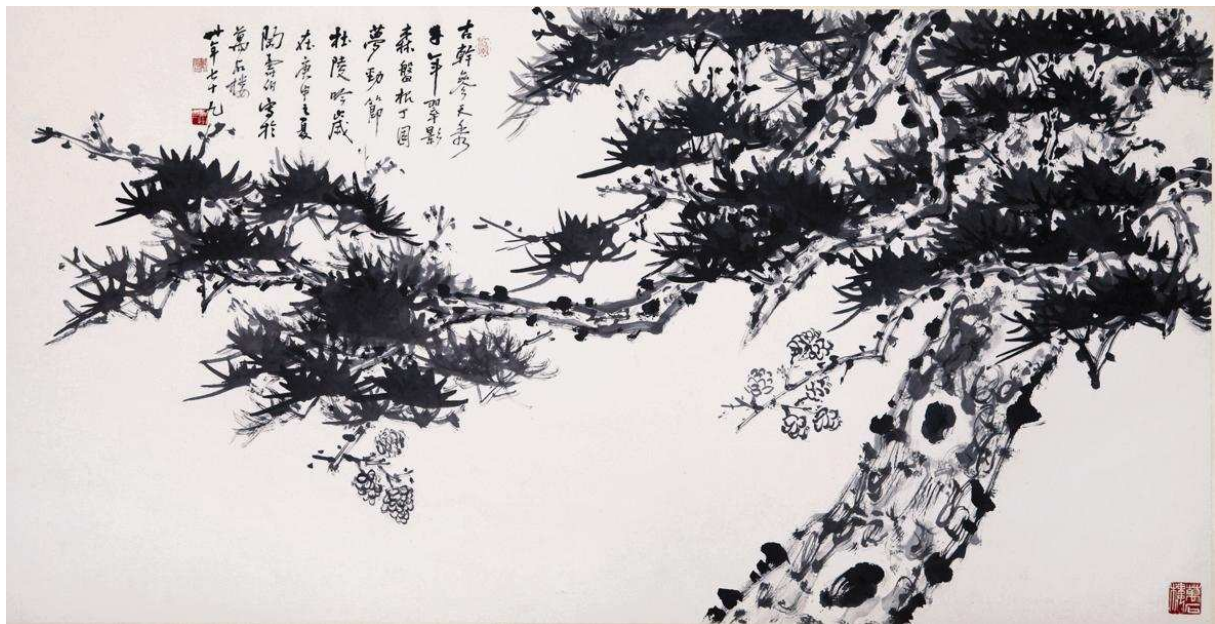 古幹參天秀
千年翠影
森盤根丁固
夢勁節
杜陵吟歲
在庚申之夏
陶壽伯寫於
萬石樓
時年七十九
萬石樓